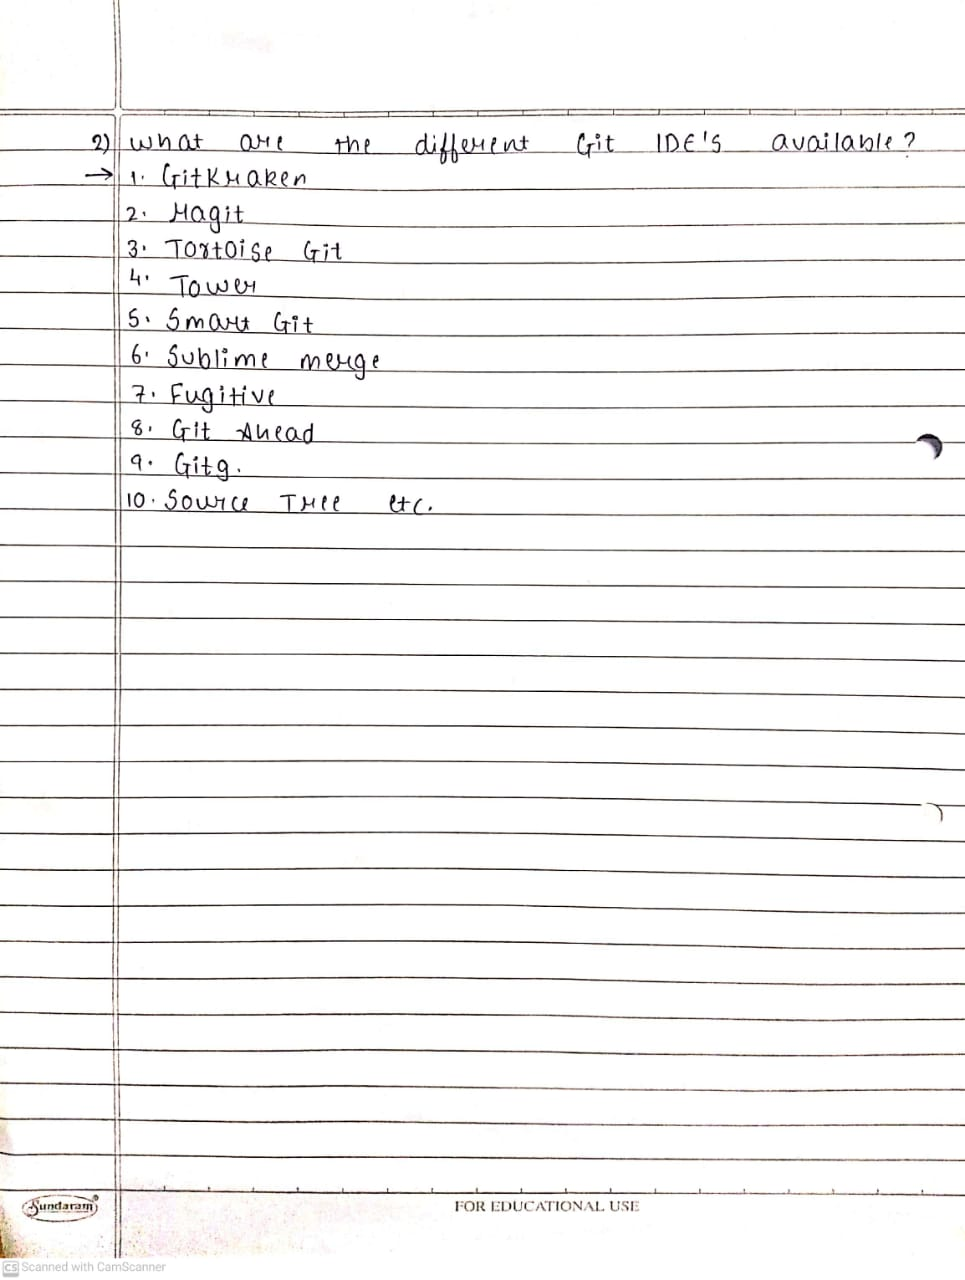 2) what are the different Git IDE's available?
→ 1. GitKraken
2. Magit
3. Tortoise Git
4. Tower
5. Smart Git
6. Sublime merge
7. Fugitive
8. Git Ahead
9. Gitg.
10. Source Tree etc.
Sundaram®
FOR EDUCATIONAL USE
CS Scanned with CamScanner